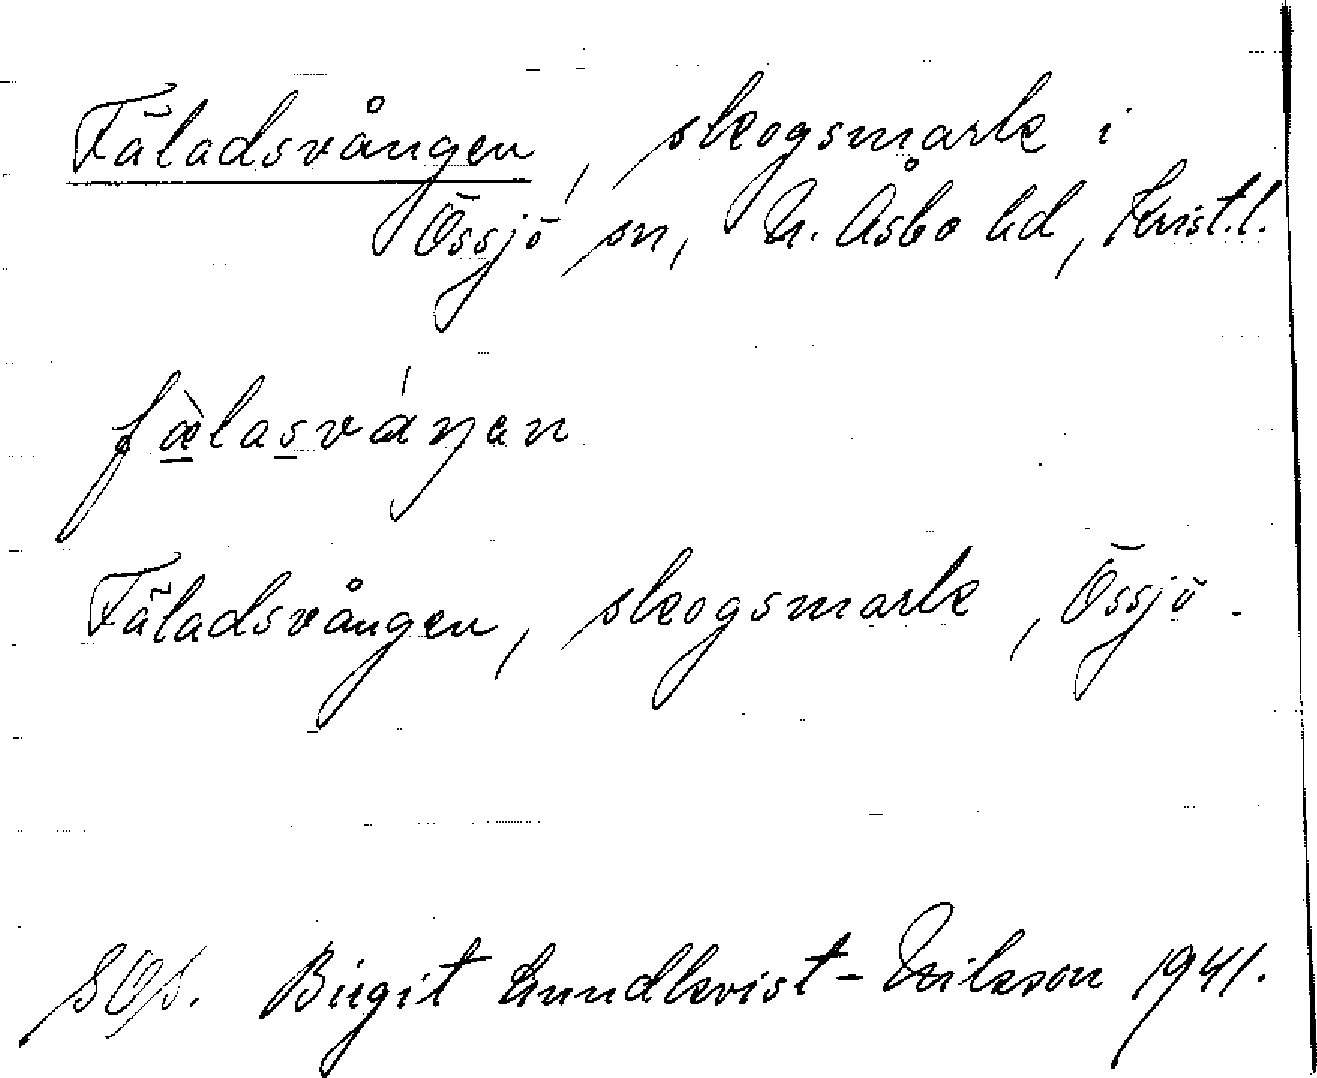 Fäladsvången, skogsmark i
Össjö sn, N. Åsbo hd, Krist.l.
fæ̀lasváŋen
Fäladsvången, skogsmark, Össjö.
Birgit Lundkvist-Nilsson 1941.